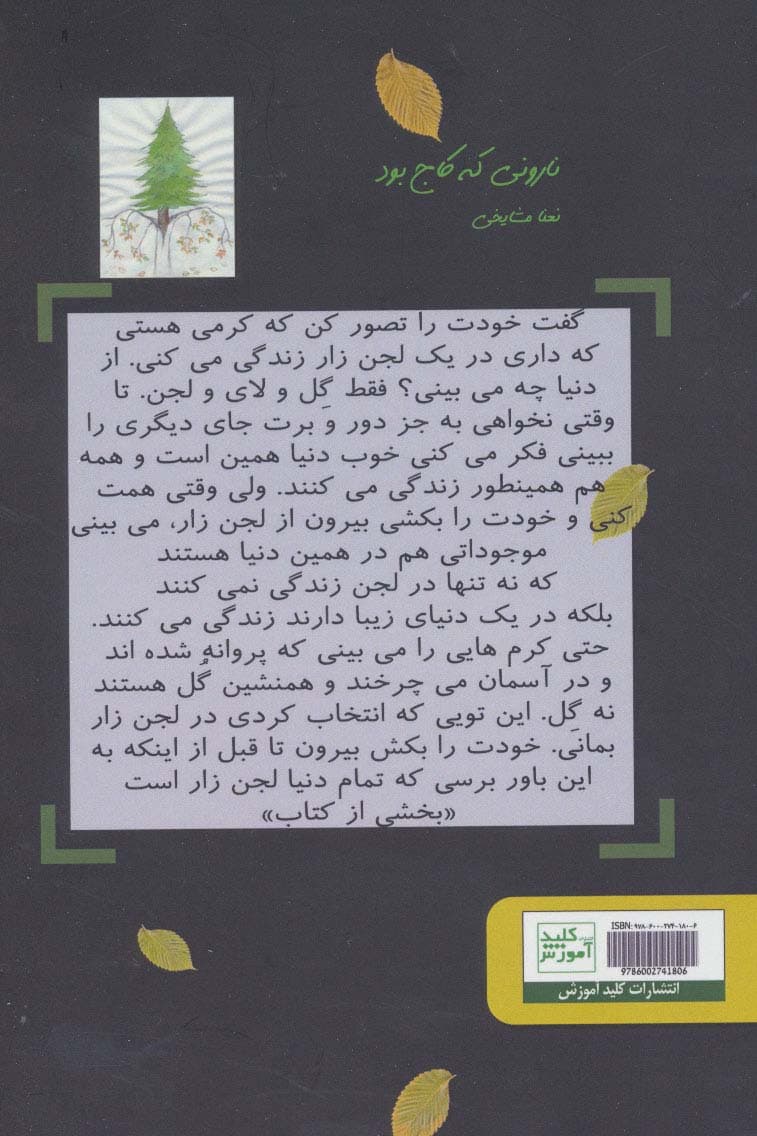 نارونی که کاج بود
نعنا مشایخی
گفت خودت را تصور کن که کرمی هستی
که داری در یک لجن زار زندگی می کنی. از
دنیا چه می بینی؟ فقط گِل و لای و لجن. تا
وقتی نخواهی به جز دور و برت جای دیگری را
ببینی فکر می کنی خوب دنیا همین است و همه
هم همینطور زندگی می کنند. ولی وقتی همت
کنی و خودت را بکشی بیرون از لجن زار، می بینی
موجوداتی هم در همین دنیا هستند
که نه تنها در لجن زندگی نمی کنند
بلکه در یک دنیای زیبا دارند زندگی می کنند.
حتی کرم هایی را می بینی که پروانه شده اند
و در آسمان می چرخند و همنشین گُل هستند
نه گِل. این تویی که انتخاب کردی در لجن زار
بمانی. خودت را بکش بیرون تا قبل از اینکه به
این باور برسی که تمام دنیا لجن زار است
«بخشی از کتاب»
ISBN: ۹۷۸-۶۰۰-۲۷۴-۱۸۰-۶
کلید
آموزش
9786002741806
انتشارات کلید آموزش